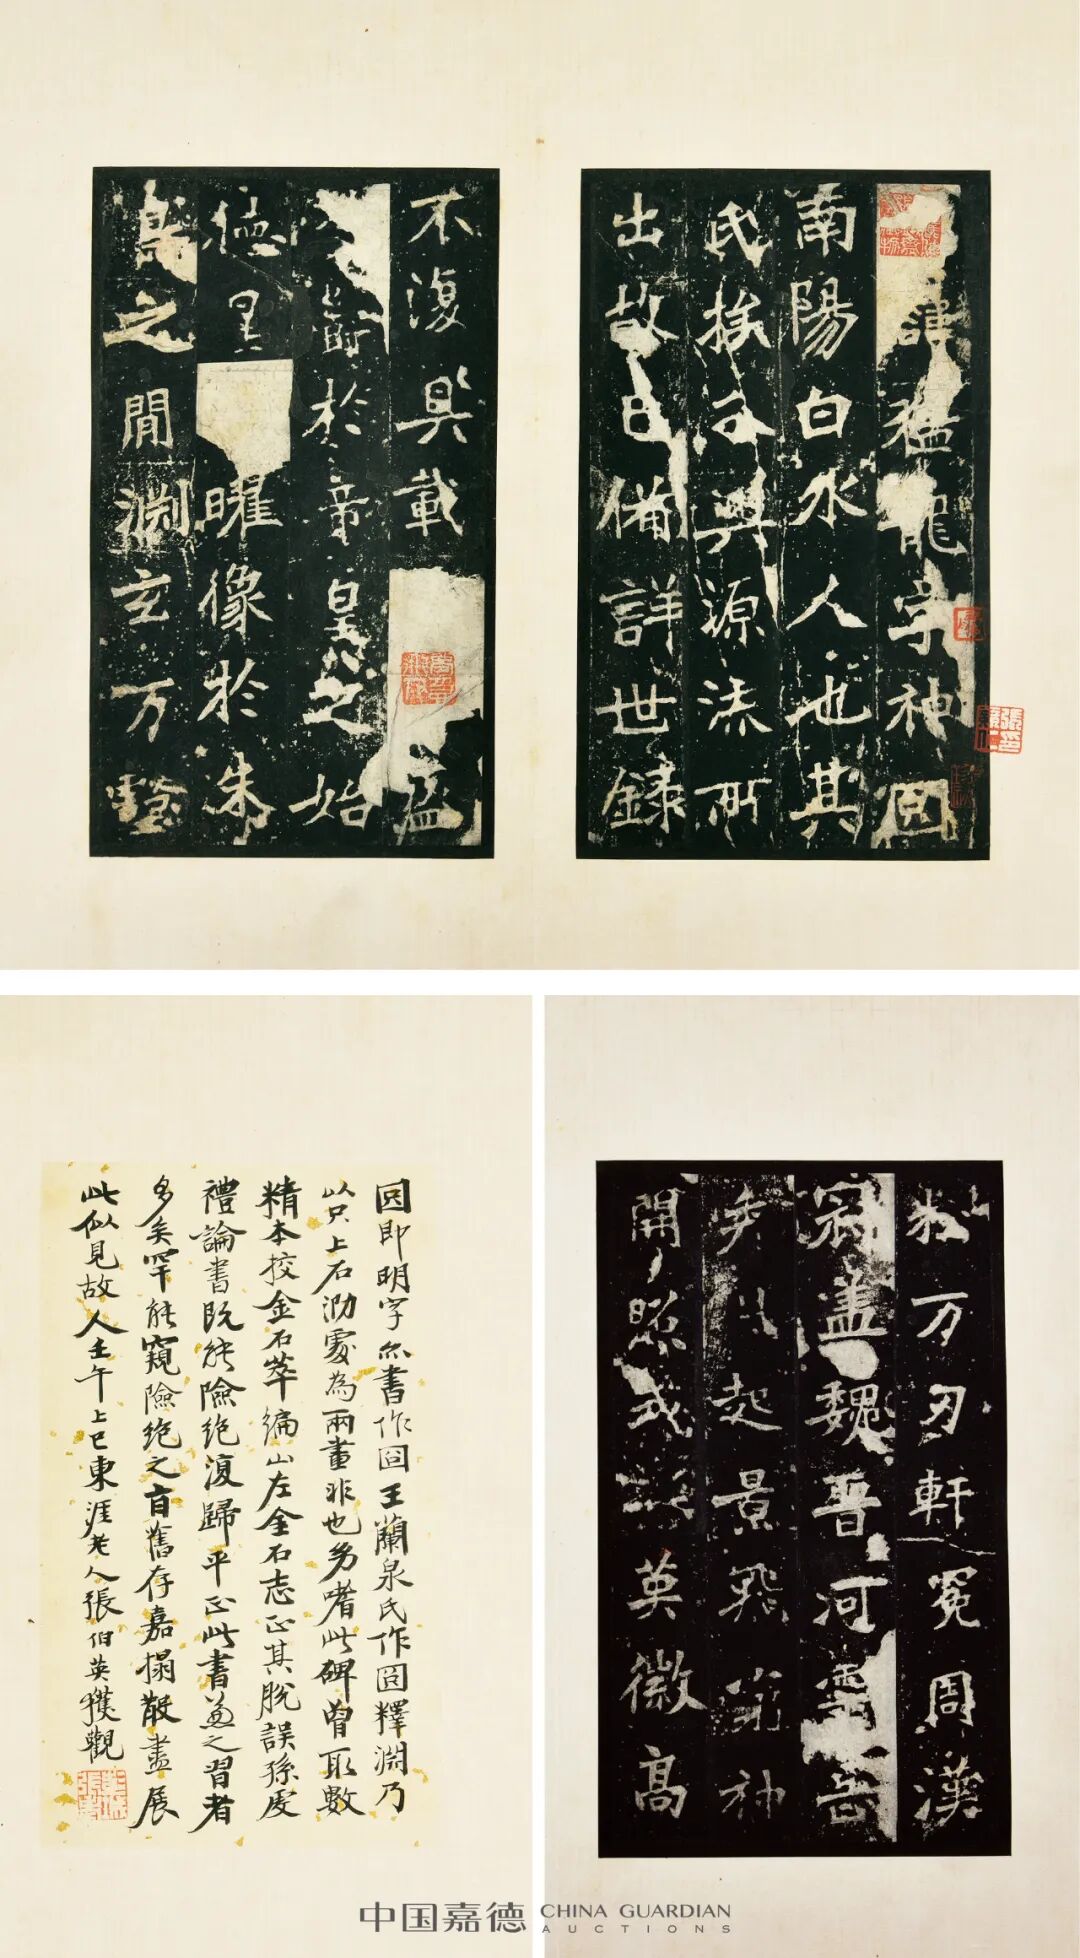 諱猛龍字神冏
南陽白水人也其
氏族分興源流所
出故已備詳世錄
不復具載 益
於帝皇之始
德星 曜像於朱
鳥之間淵玄万壑
松万刃軒冕周漢
冠盖魏晋河靈岳
起景
開照 英徽高
囧即明字亦書作囧王蘭泉氏作圓釋淵乃
以只上石泐處為兩畫非也多嗜此碑曾取數
精本挍金石萃編山左金石志正其脫誤孫虔
禮論書既能險絶復歸平正此書兼之習者
多矣罕能窺險絶之旨舊存嘉搨散盡展
此似見故人壬午上巳東涯老人張伯英獲觀
中国嘉德 CHINA GUARDIAN
AUCTIONS